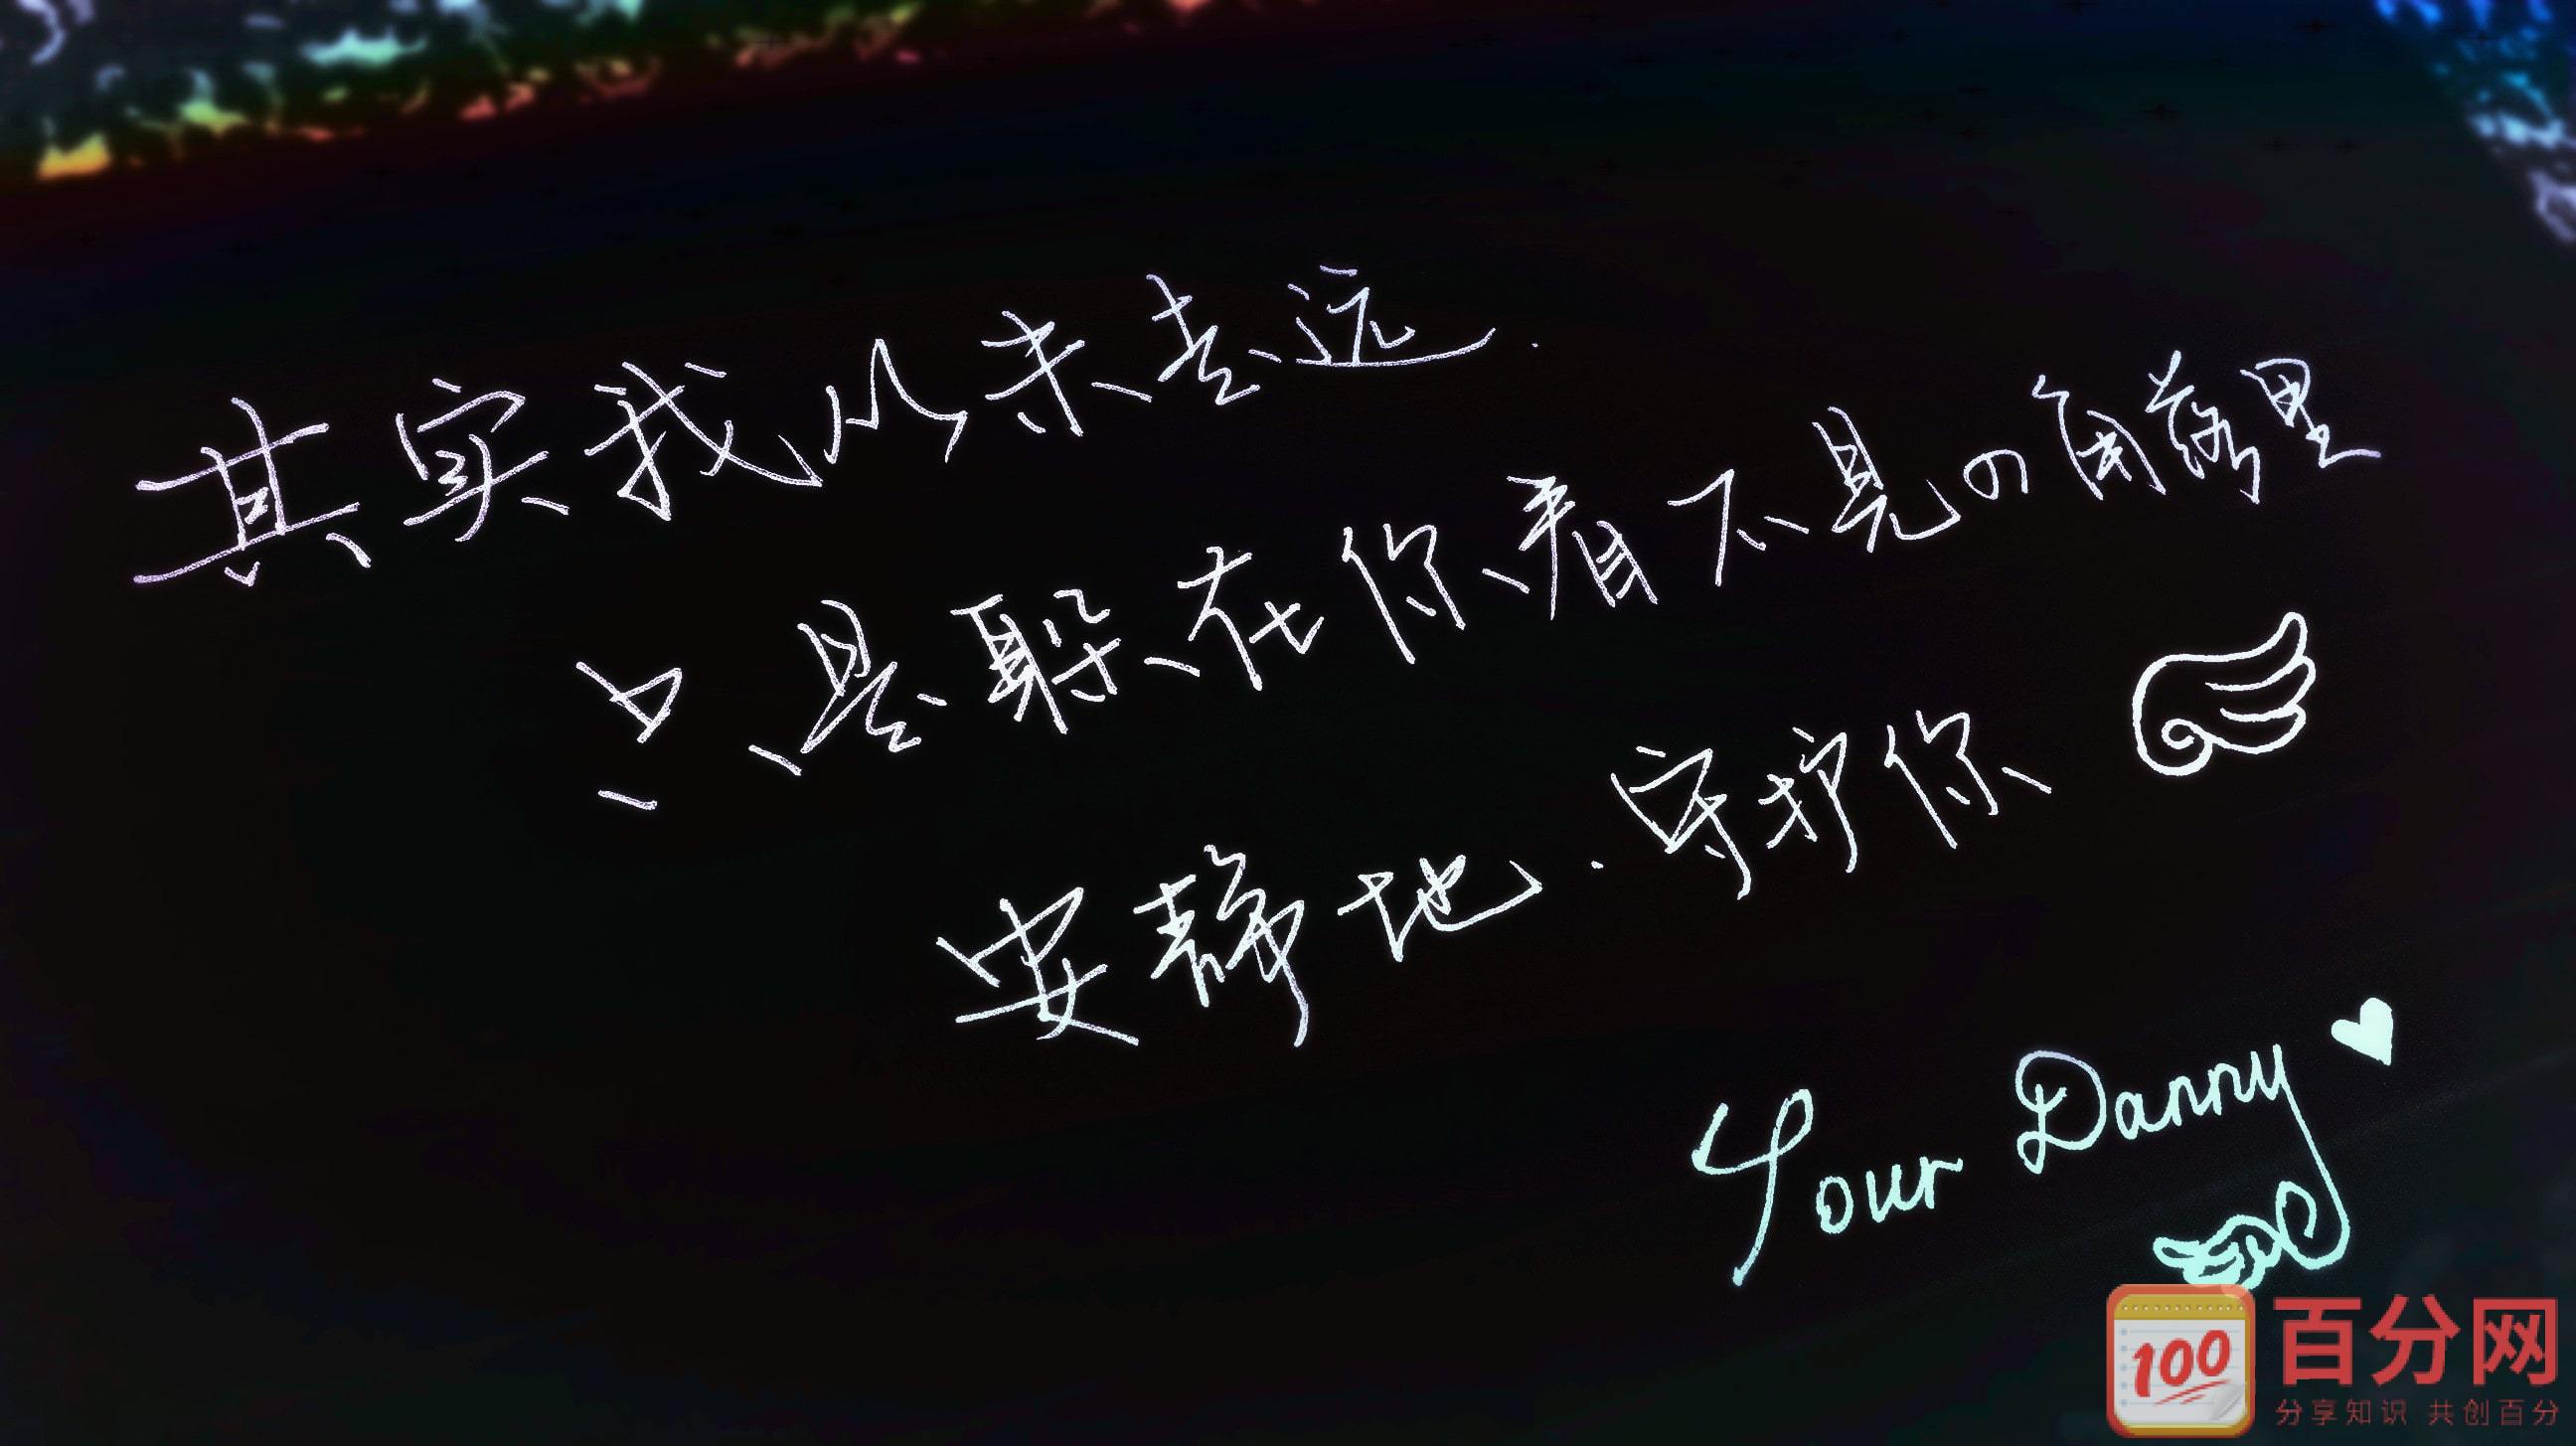 其实我从未去远.
只是躲在你看不见の角落里
安静地.守护你
Your Danny
100
百分网
分享知识 共创百分